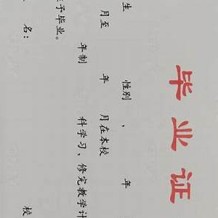 毕业证
生 性别 , 年
月至 年 月在本校
年制 科学习,修完教学计
予毕业。
名: 校